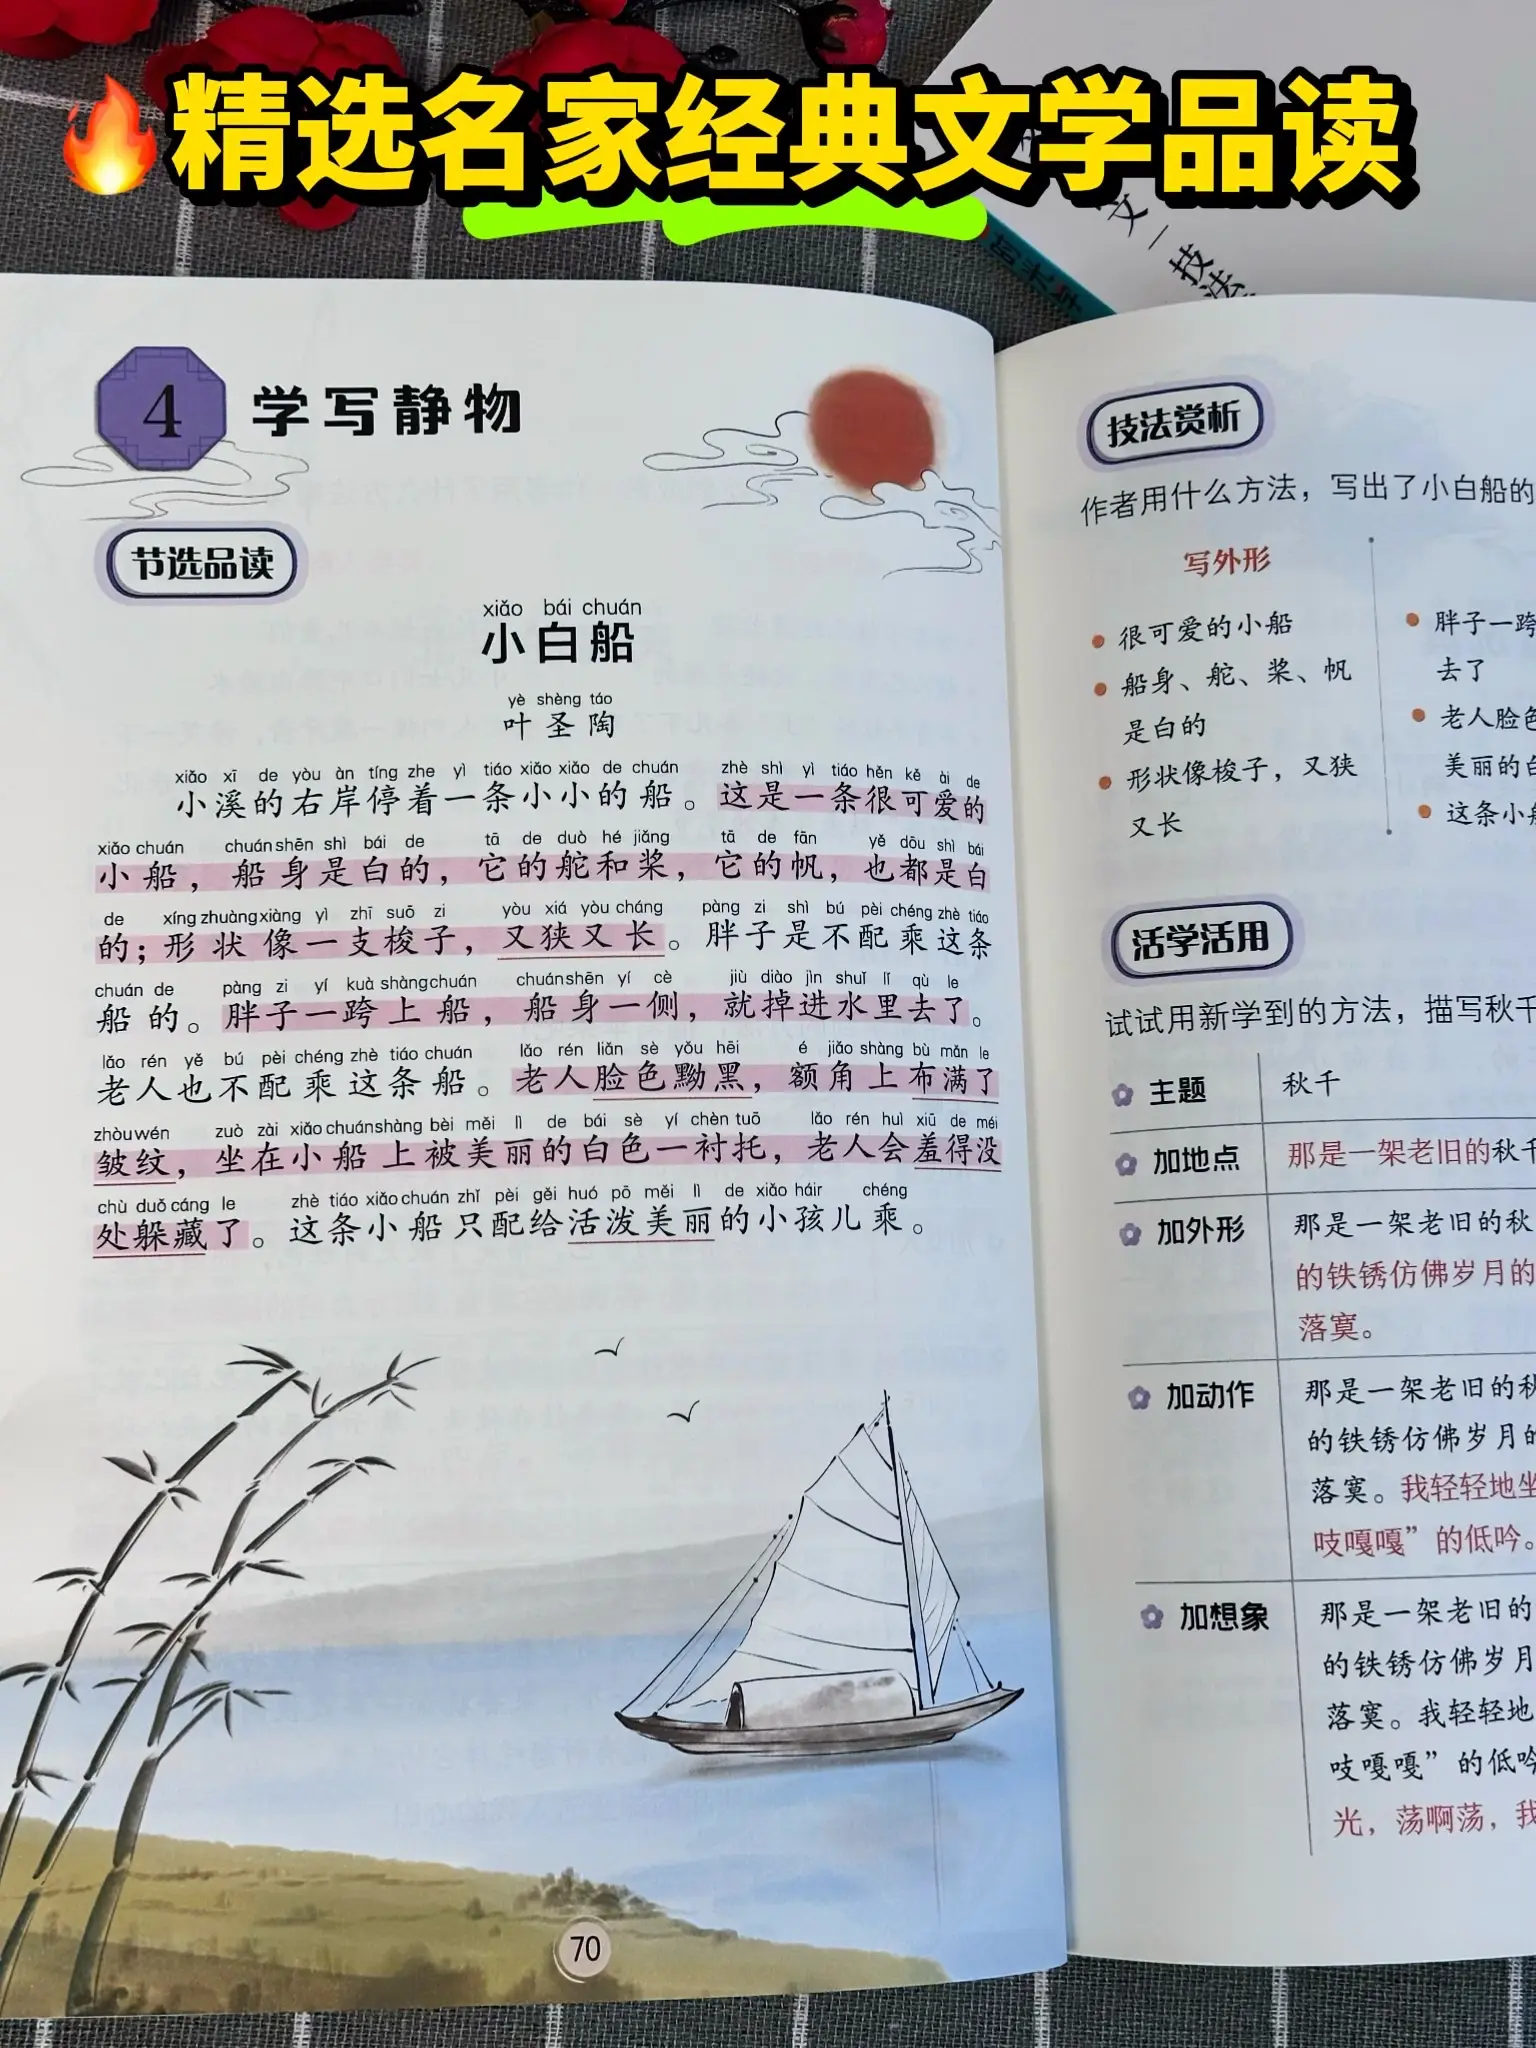 🔥精选名家经典文学品读
文一技法
4 学写静物
节选品读
xiǎo bái chuán
小白船
yè shèng táo
叶圣陶
xiǎo xī de yòu àn tíng zhe yì tiáo xiǎo xiǎo de chuán zhè shì yì tiáo hěn kě ài de
小溪的右岸停着一条小小的船。这是一条很可爱的
xiǎo chuán chuán shēn shì bái de tā de duò hé jiǎng tā de fān yě dōu shì bái
小船，船身是白的，它的舵和桨，它的帆，也都是白
de xíng zhuàng xiàng yì zhī suō zi yòu xiá yòu cháng pàng zi shì bú pèi chéng zhè tiáo
的；形状像一支梭子，又狭又长。胖子是不配乘这条
chuán de pàng zi yí kuà shàng chuán chuán shēn yí cè jiù diào jìn shuǐ lǐ qù le
船的。胖子一跨上船，船身一侧，就掉进水里去了。
lǎo rén yě bú pèi chéng zhè tiáo chuán lǎo rén liǎn sè yǒu hēi é jiǎo shàng bù mǎn le
老人也不配乘这条船。老人脸色黝黑，额角上布满了
zhòu wén zuò zài xiǎo chuán shàng bèi měi lì de bái sè yí chèn tuō lǎo rén huì xiū de méi
皱纹，坐在小船上被美丽的白色一衬托，老人会羞得没
chù duǒ cáng le zhè tiáo xiǎo chuán zhǐ pèi gěi huó pō měi lì de xiǎo háir chéng
处躲藏了。这条小船只配给活泼美丽的小孩儿乘。
70
技法赏析
作者用什么方法，写出了小白船的
写外形
很可爱的小船
船身、舵、桨、帆
是白的
形状像梭子，又狭
又长
胖子一跨
去了
老人脸色
美丽的白
这条小船
活学活用
试试用新学到的方法，描写秋千
主题 秋千
加地点 那是一架老旧的秋千
加外形 那是一架老旧的秋
的铁锈仿佛岁月的
落寞。
加动作 那是一架老旧的秋
的铁锈仿佛岁月的
落寞。我轻轻地坐
吱嘎嘎”的低吟。
加想象 那是一架老旧的
的铁锈仿佛岁月
落寞。我轻轻地
吱嘎嘎”的低吟
光，荡啊荡，我